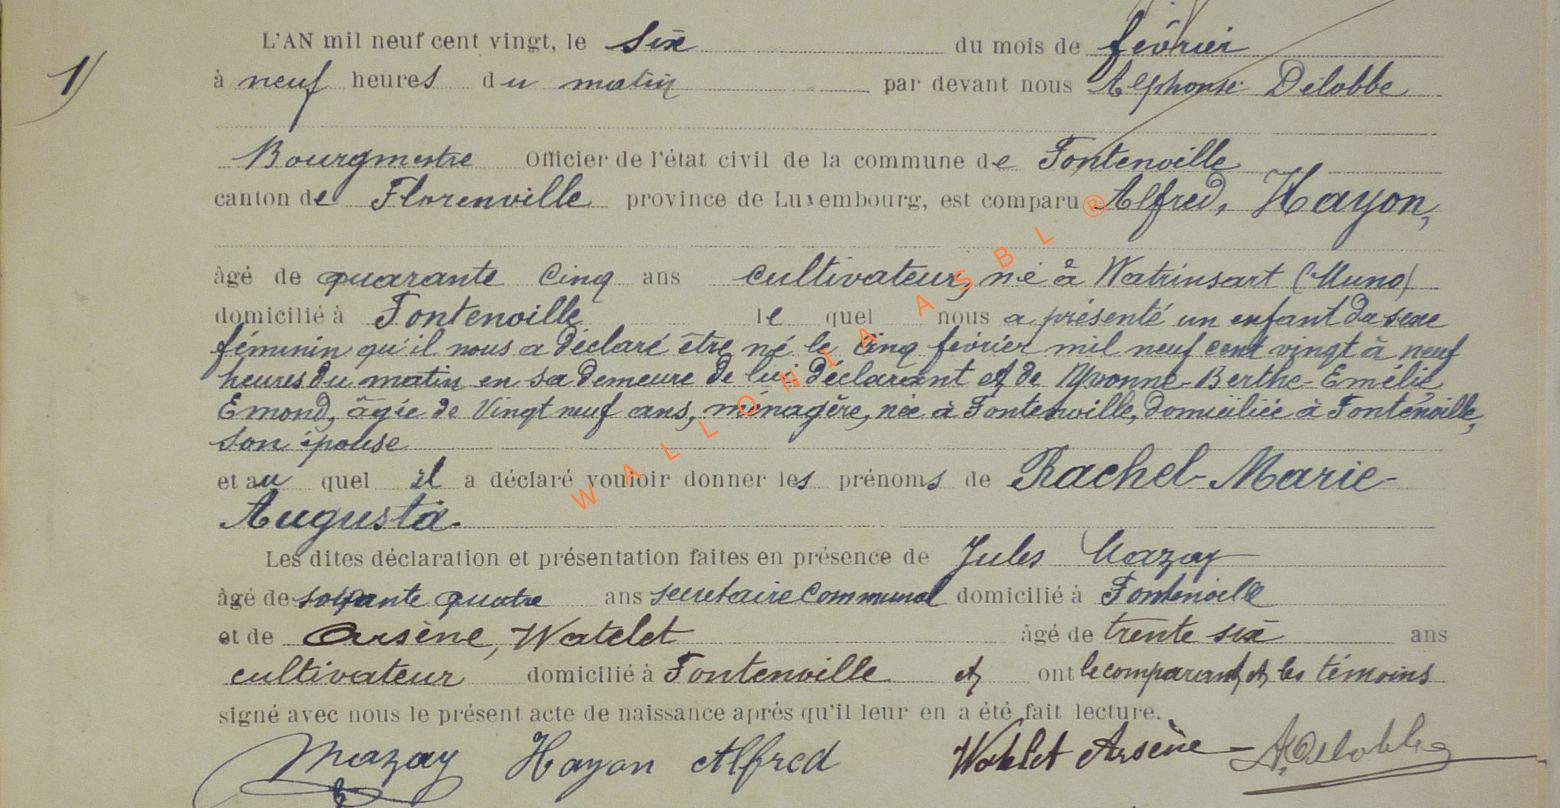 L'AN mil neuf cent vingt, le six du mois de février
1)
à neuf heures du matin par devant nous Alphonse Delobbe
Bourgmestre Officier de l'état civil de la commune de Fontenoille
canton de Florenville province de Luxembourg, est comparu Alfred, Hayon,
âgé de quarante cinq ans cultivateur, né à Watrinsart (Muno)
domicilié à Fontenoille le quel nous a présenté un enfant du sexe
féminin qu'il nous a déclaré être né le cinq février mil neuf cent vingt à neuf
heures du matin en sa demeure de lui déclarant et de Yvonne-Berthe-Emélie
Emond, âgée de vingt neuf ans, ménagère, née à Fontenoille, domiciliée à Fontenoille,
son épouse
et au quel il a déclaré vouloir donner les prénoms de Rachel-Marie-
Augusta.
Les dites déclaration et présentation faites en présence de Jules Mazay
âgé de soixante quatre ans secrétaire communal domicilié à Fontenoille
et de Arsène, Watelet âgé de trente six ans
cultivateur domicilié à Fontenoille et ont le comparant et les témoins
signé avec nous le présent acte de naissance après qu'il leur en a été fait lecture.
Mazay Hayon Alfred Watelet Arsène A. Delobbe
WALLONIA ASBL ®